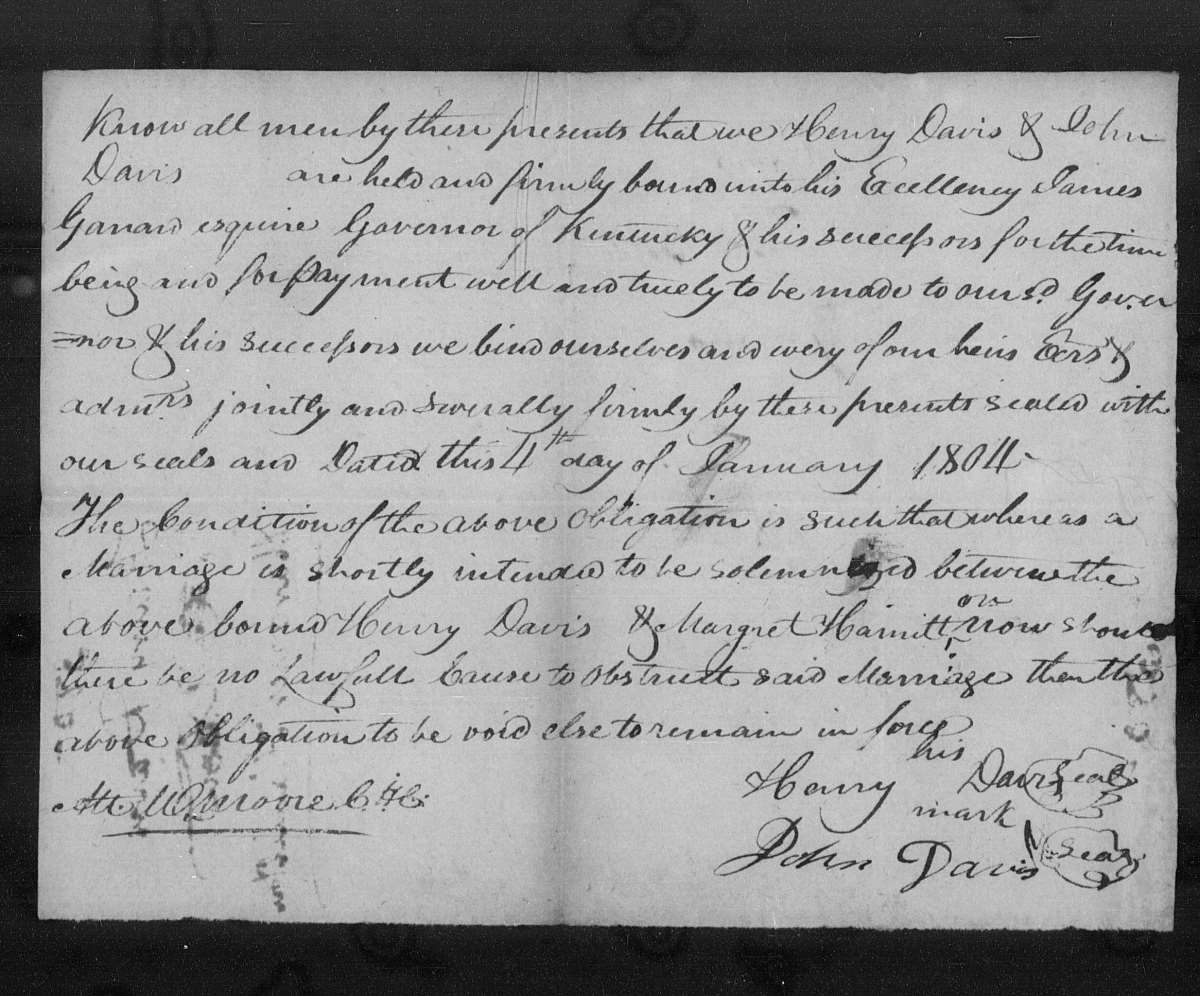 Know all men by these presents that we Henry Davis & John
Davis are held and firmly bound unto his Excellency James
Garrard esquire Governor of Kentucky & his successors for the time
being and for payment well and truely to be made to our sd. Gover
=nor & his successors we bind ourselves and every of our heirs Exrs &
admrs jointly and severally firmly by these presents sealed with
our seals and Dated this 4th day of January 1804
The Condition of the above obligation is such that whereas a
Marriage is shortly intended to be solemnized between the
above bound Henry Davis & Margret Hamilton now should
there be no Lawfull Cause to obstruct said Marriage then the
above obligation to be void else to remain in force
his
Henry Davis Seal
mark
Att. Moore C.H.C.
John Davis Seal